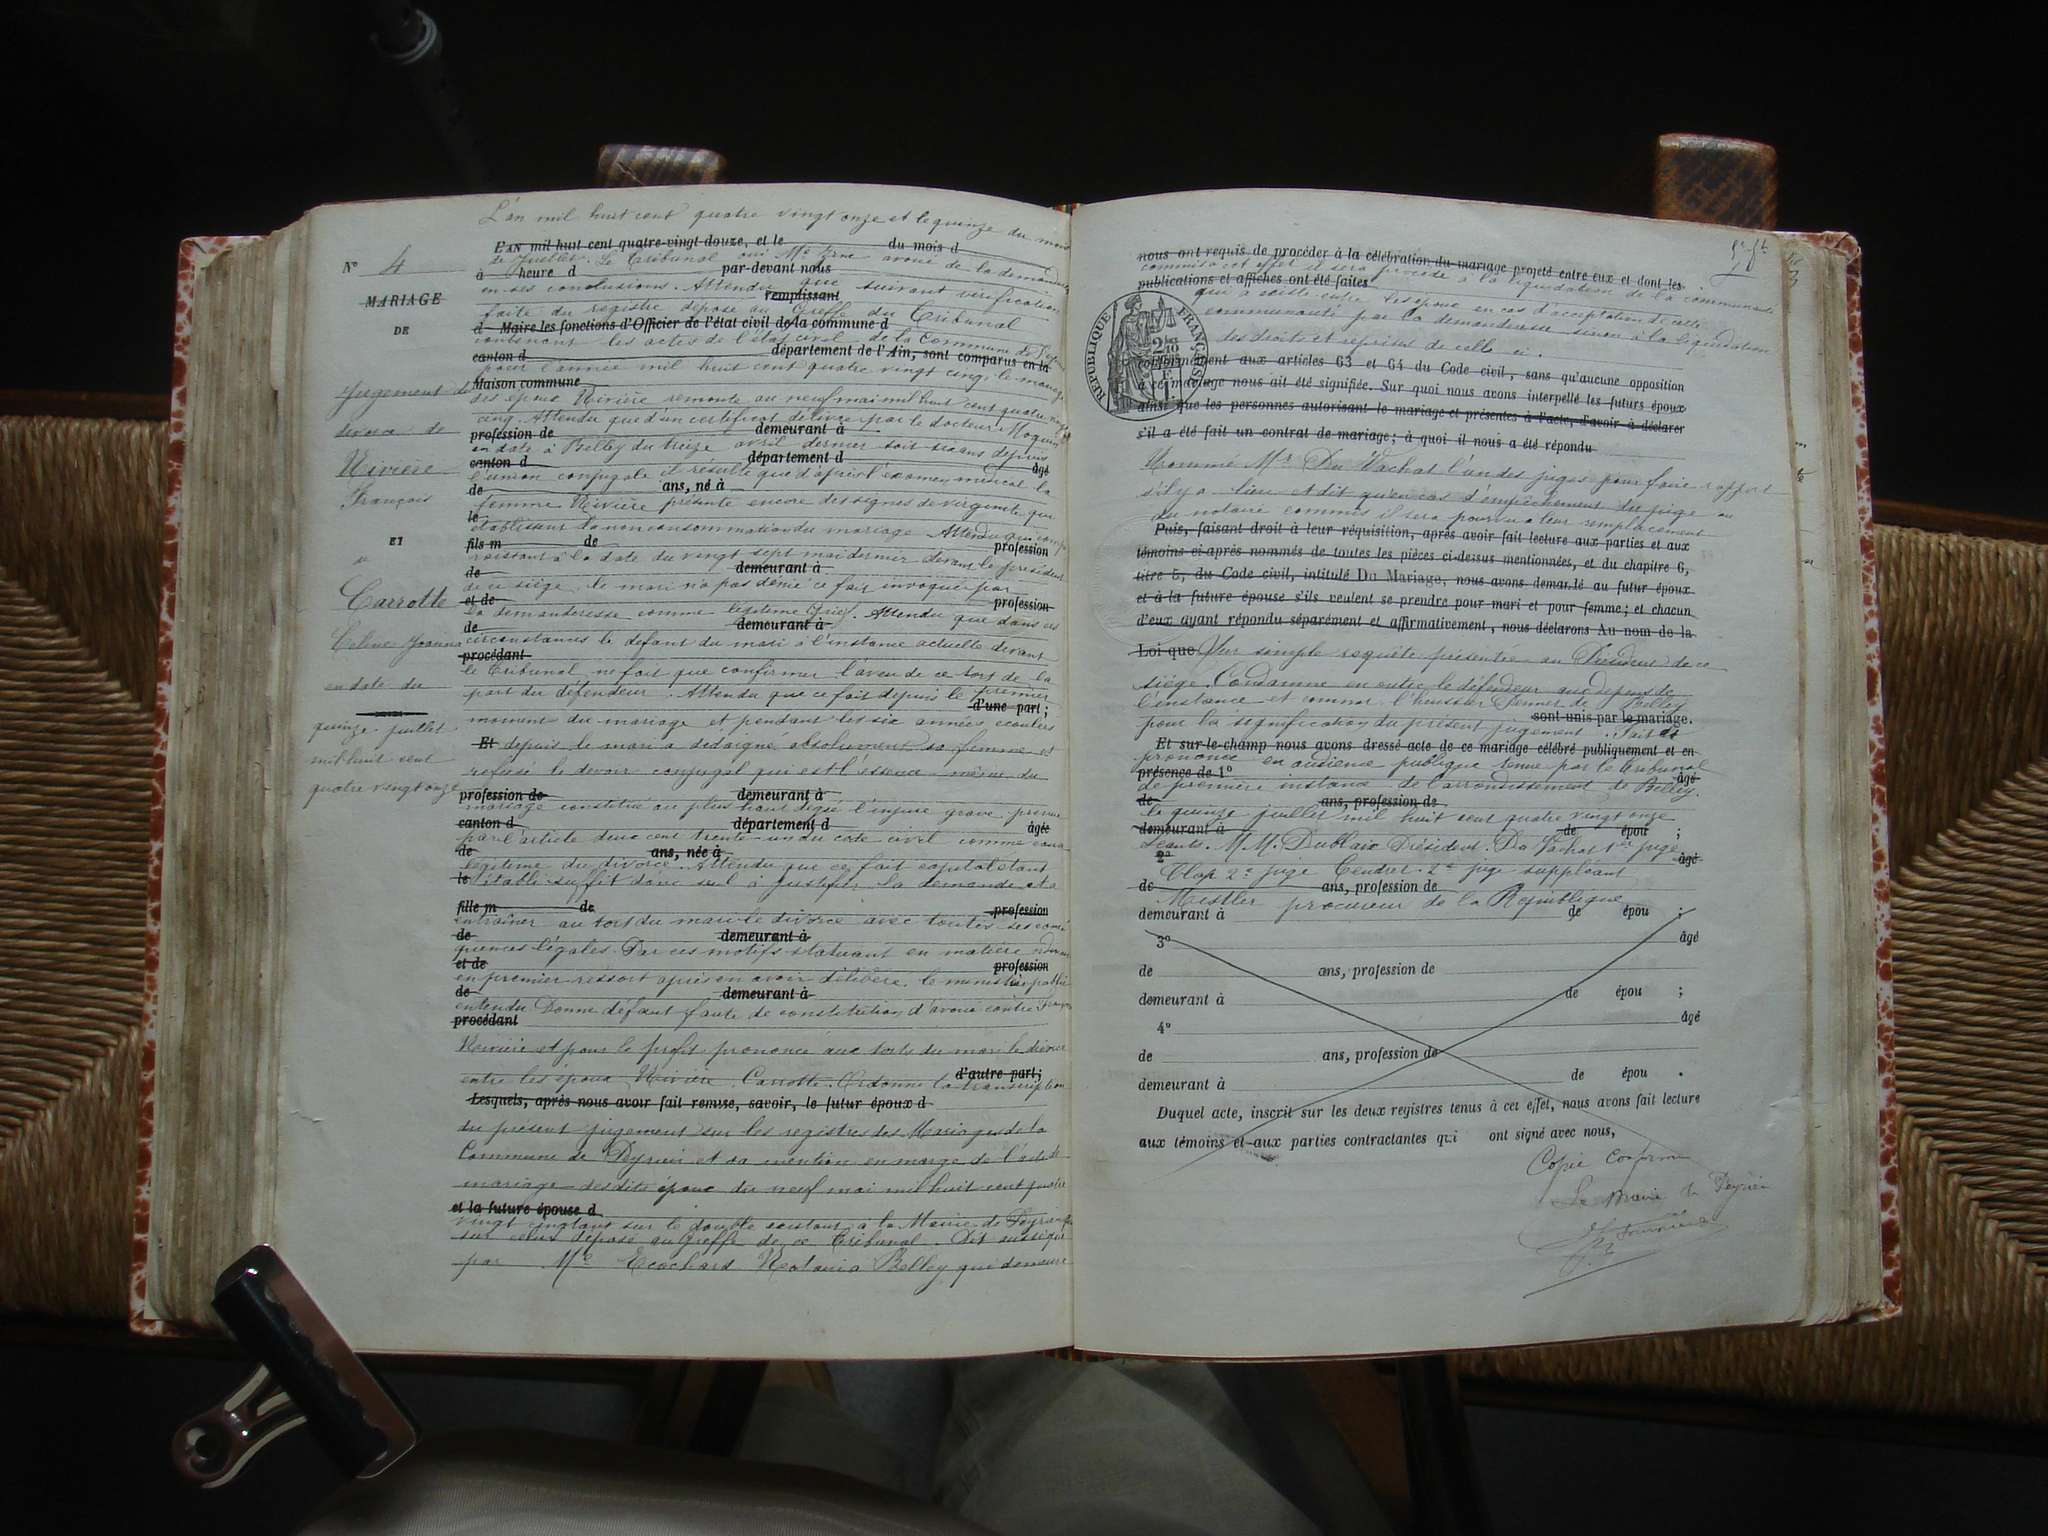 N° 4
MARIAGE
DE
Jugement de
divorce de
Rivière
François
ET
Carrotte
Celine Joanna
en date du
quinze juillet
mil huit cent
quatre vingt onze
L'an mil huit cent quatre vingt onze et le quinze du mois
L'AN mil huit cent quatre-vingt-douze, et le du mois d
de Juillet. Le Tribunal oui Me avoué de la demanderesse
à heure d par-devant nous
en ses conclusions. Attendu que suivant vérification
remplissant
faite du registre déposé au Greffe du Tribunal
d Maire les fonctions d'Officier de l'état civil de la commune d
contenant les actes de l'état civil de la Commune de
canton d département de l'Ain, sont comparus en la
pour l'année mil huit cent quatre vingt cinq, le mariage
Maison commune
des époux Rivière remonte au neuf mai mil huit cent quatre vingt
cinq. Attendu que d'un certificat délivré par le docteur Moquin
profession de demeurant à
en date à Belley du treize avril dernier soit six ans depuis
canton d département d âgé
l'union conjugale il résulte que d'après l'examen médical la
de ans, né à
femme Rivière présente encore des signes de virginité qui
le
établissent la non consommation du mariage Attendu que
fils m de profession
à la date du vingt sept mai dernier devant le président
de demeurant à
de ce siège, le mari n'a pas dénié ce fait invoqué par
et de profession
la demanderesse comme légitime grief. Attendu que dans ces
de demeurant à
circonstances le défaut du mari à l'instance actuelle devant
procédant
le Tribunal ne fait que confirmer l'aveu de ce tort de la
part du défendeur. Attendu que ce fait depuis le premier
d'une part;
moment du mariage et pendant les six années écoulées
Et depuis le mari a dédaigné absolument sa femme et
refusé le devoir conjugal qui est l'essence même du
profession de demeurant à
mariage constitue au plus haut degré l'injure grave prévue
canton d département d âgée
par l'article deux cent trente-un du code civil comme cause
de ans, née à
légitime du divorce. Attendu que ce fait capital étant
le établi suffit donc seul à justifier la demande et à
fille m de profession
entraîner au tort du mari le divorce avec toutes ses consé
de demeurant à
quences légales. Par ces motifs statuant en matière ordinaire
et de profession
en premier ressort après en avoir délibéré, le ministère public
de demeurant à
entendu Donne défaut faute de constitution d'avoué contre
procédant
Rivière et pour le profit prononce aux torts du mari le divorce
d'autre part;
entre les époux Rivière Carrotte. Ordonne la transcription
Lesquels, après nous avoir fait remise, savoir, le futur époux d
du présent jugement sur les registres des Mariages de la
Commune de Peyrieu et sa mention en marge de l'acte de
mariage desdits époux du neuf mai mil huit cent quatre
et la future épouse d
vingt cinq tant sur le double existant à la Mairie de Peyrieu que
sur celui déposé au Greffe de ce Tribunal. Dit aussi que
par Me Ecochard Notaire à Belley qui demeure
nous ont requis de procéder à la célébration du mariage projeté entre eux et dont les
commis à cet effet il sera procédé à la liquidation de la communauté
publications et affiches ont été faites
qui a existé entre les époux en cas d'acceptation de cette
communauté par la demanderesse sinon à la liquidation
des droits et reprises de celle ci.
RÉPUBLIQUE FRANÇAISE
conformément aux articles 63 et 64 du Code civil, sans qu'aucune opposition
à ce mariage nous ait été signifiée. Sur quoi nous avons interpellé les futurs époux
ainsi que les personnes autorisant le mariage et présentes à l'acte, d'avoir à déclarer
s'il a été fait un contrat de mariage; à quoi il nous a été répondu
Nomme Mr Du Vachat l'un des juges pour faire rapport
s'il y a lieu et dit qu'en cas d'empêchement du juge ou
du notaire commis il sera pourvu à leur remplacement
Puis, faisant droit à leur réquisition, après avoir fait lecture aux parties et aux
témoins ci-après nommés de toutes les pièces ci-dessus mentionnées, et du chapitre 6,
titre 5, du Code civil, intitulé Du Mariage, nous avons demandé au futur époux
et à la future épouse s'ils veulent se prendre pour mari et pour femme; et chacun
d'eux ayant répondu séparément et affirmativement, nous déclarons Au nom de la
Loi que Sur simple requête présentée au Président de ce
siège. Condamne en outre le défendeur aux dépens de
l'instance et commet l'huissier de Belley
sont unis par le mariage.
pour la signification du présent jugement. Fait et
Et sur-le-champ nous avons dressé acte de ce mariage célébré publiquement et en
prononcé en audience publique tenue par le tribunal
présence de 1° âgé
de première instance de l'arrondissement de Belley.
de ans, profession de
le quinze juillet mil huit cent quatre vingt onze
demeurant à de épou ;
Séants. M.M. Président. Du Vachat 1er juge
2° âgé
2e juge Tendret 2e juge suppléant
de ans, profession de
Mistler procureur de la République
demeurant à de épou ;
3° âgé
de ans, profession de
demeurant à de épou ;
4° âgé
de ans, profession de
demeurant à de épou .
Duquel acte, inscrit sur les deux registres tenus à cet effet, nous avons fait lecture
aux témoins et aux parties contractantes qui ont signé avec nous,
Copie conforme
Le Maire de Peyrieu